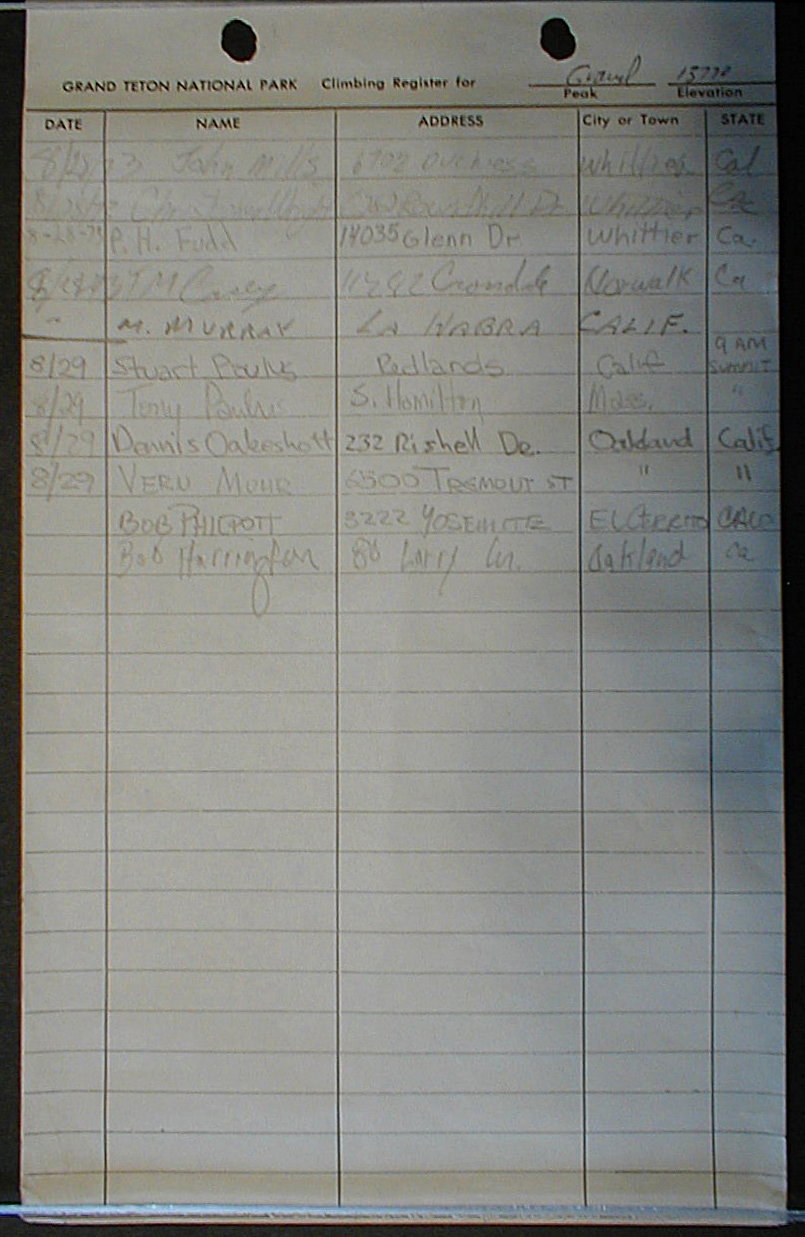 GRAND TETON NATIONAL PARK Climbing Register for Grand 13770
Peak Elevation
DATE NAME ADDRESS City or Town STATE
8/28/73 John Mills 6702 Duchess Whittier Cal
Whittier Ca
8-28-73 P. H. Fudd 14035 Glenn Dr Whittier Ca.
8/28/73 Norwalk Ca
" M. MURRAY LA HABRA CALIF.
8/29 Stuart Paulus Redlands Calif 9 AM SUMMIT
8/29 Tony Paulus S. Hamilton Mass. "
8/29 Dennis Oakeshott 232 Rishell Dr. Oakland Calif
8/29 VERN MUHR 6500 TREMONT ST " "
BOB PHILPOTT 3222 YOSEMITE EL CERRITO
Bob Harrington 86 Larry Ln. Oakland Ca